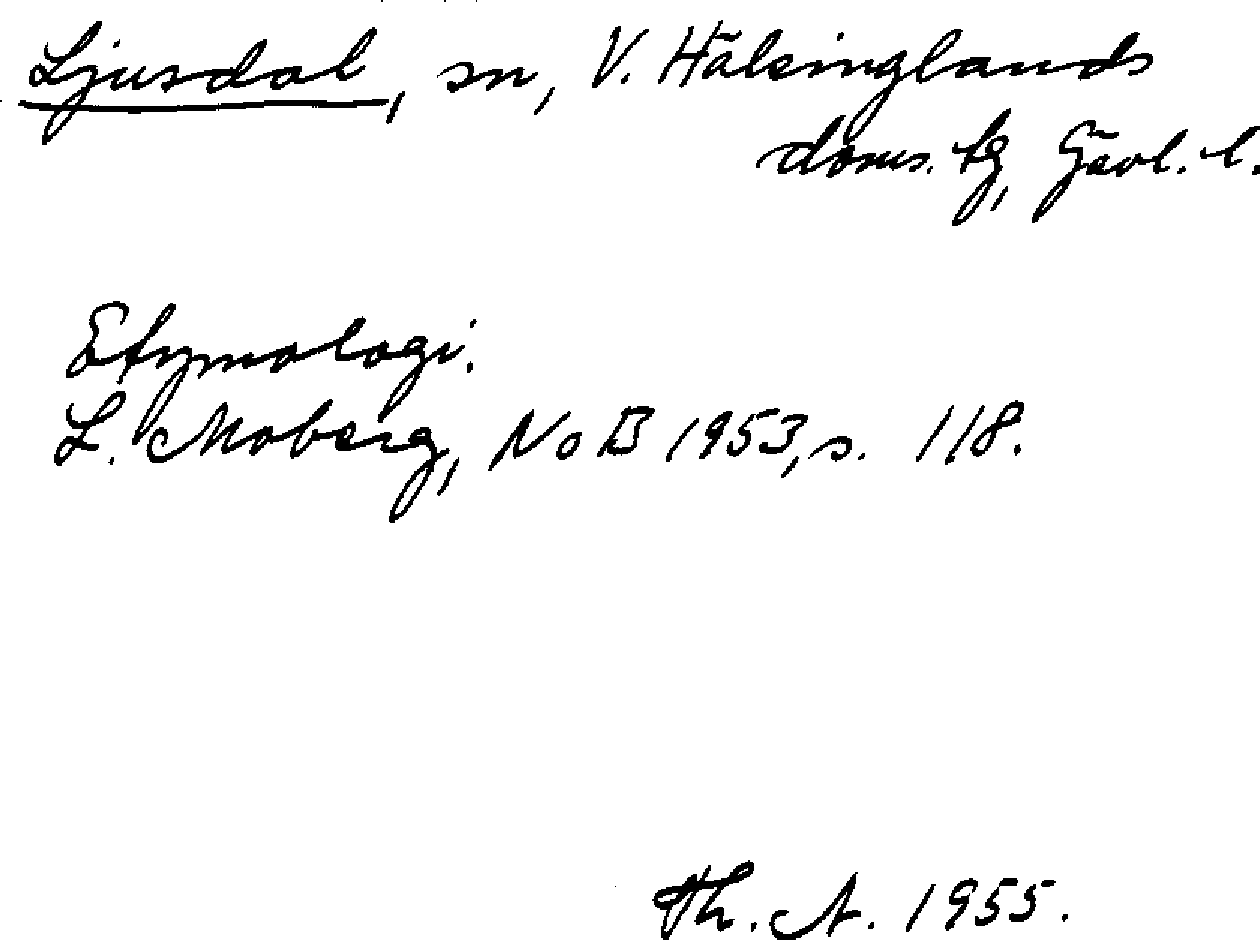 Ljusdal, sn, V. Hälsinglands
doms. tg, Gävl. l.
Etymologi.
L. Moberg, NoB 1953, s. 118.
Th. A. 1955.